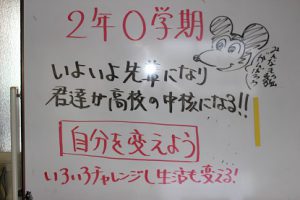 2年0学期
いよいよ先輩になり
君達が高校の中核になる!!
自分を変えよう
いろいろチャレンジし生活も変える!
みんなも勉強
がんばろう